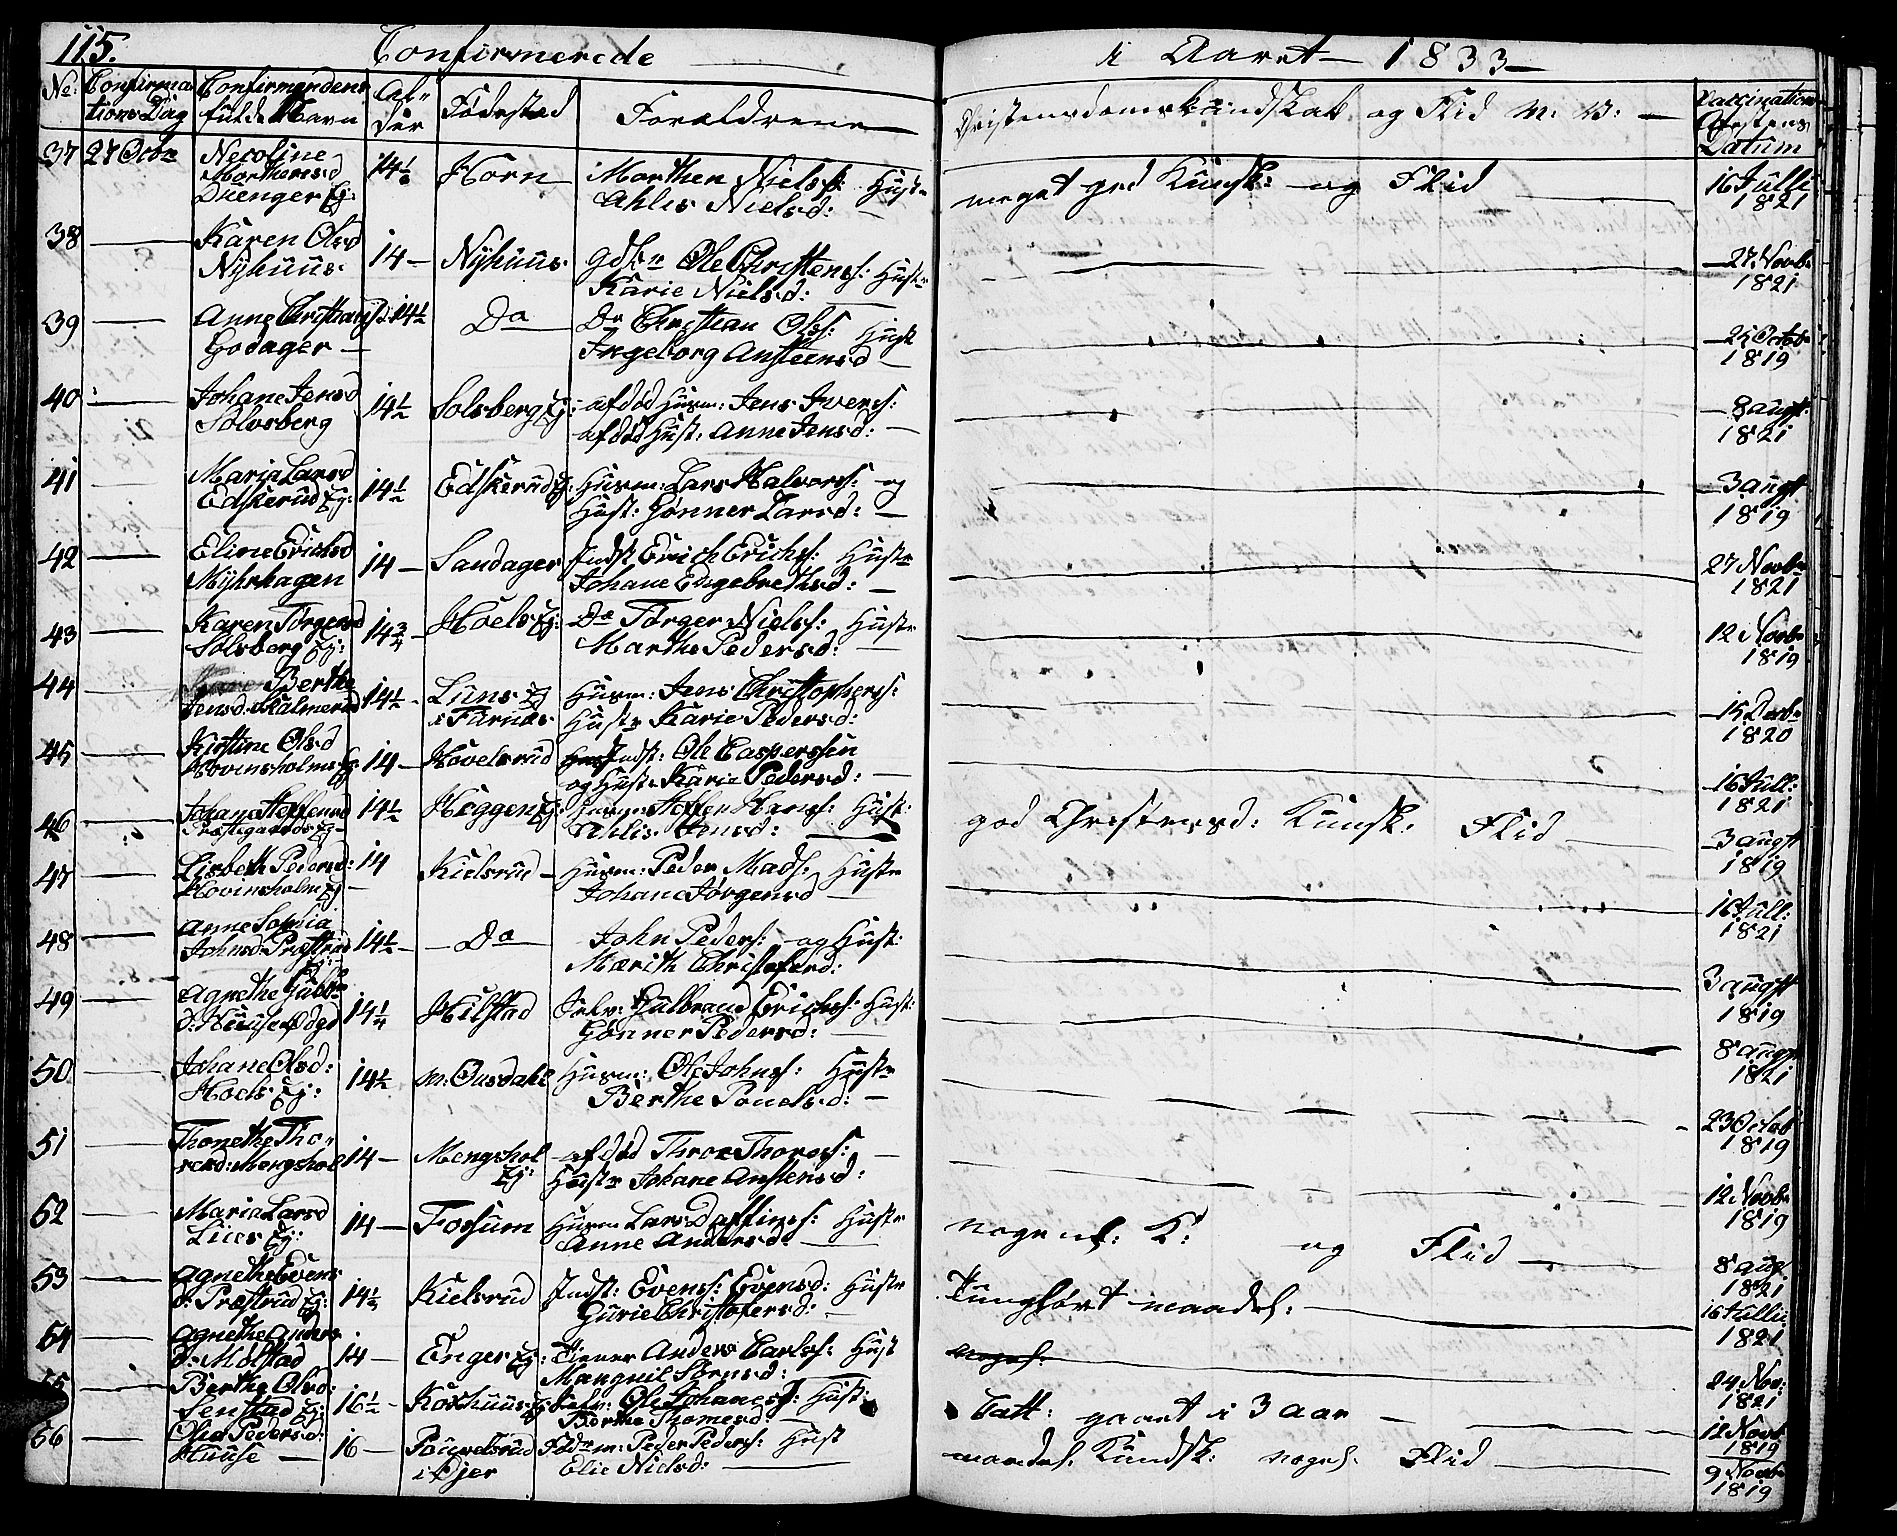 115.
Confirmerede
i Aaret 1833
No:
Confirma
tions Dag
Confirmandens
fulde Navn
Al-
der
Fødested
Forældrene
Christendomskundskab og Flid m: v:
Vaccinations
Attestens
Datum
37 27 Octbr
Nicoline
Marthensd
Duenger Ej:
Horn
Marthen Niels: Hustr
Ahlis Nielsd:
meget god Kundsk: og Flid
16 Julli
1821
38
Karen Olsd
Nÿhuus
14
Nÿhuus
Ole Christens: Hustr
Karie Nielsd:
27 Novbr
1821
39
Anne Christians
Godager
14½
Do
Do Christian Ols: Hust
Ingeborg Anstensd
25 Octob
1819
40
Johane Jensd
Solvsberg
14½
Solsberg Ej:
afdød Husm: Jens Ivers:
afdød Hust: Anne Jensd:
8 augt:
1821
41
Maria Larsd
Edskerud Ej:
14½
Edskerud Ej:
Husm: Lars Halvors: og
Hust: Gønner Larsd:
3 augt
1819
42
Eline Erichsd
Mÿhrhagen
14
Sandager
Indst Erich Erichs: Hustr
Johane Engebrethsd:
27 Novbr
1821
43
Karen Tørgersd
Solsberg Ej:
14¾
Hoels Ej:
Do Tørger Niels: Hustr
Marthe Pedersd:
12 Novbr
1819
44
Berthe
Jensd: Kalmerud
14½
Luns Ej
i Farnæs
Husm: Jens Christophers:
Hustr Karie Pedersd:
15 Decbr
1820
45
Kirstine Olsd
Hovinsholms Ej
14
Hovelsrud
Indst: Ole Caspersen
og Hustr Karie Pedersd:
16 Jull:
1821
46
Johane Steffensd
Præstegaards Ej
14½
Heggen Ej:
Husm: Steffen Hans: Hust:
Ahlis Jensd:
god Christensd: Kundsk: Flid
3 augt
1819
47
Lisbeth Pedersd:
Hovinsholm Ej
14
Kielsrud
Husm: Peder Mads: Hustr
Johane Jørgensd
16 Jull:
1821
48
Anne Sophia
Johnsd: Præstrud
Ej:
14½
Do
John Peders: og Hust:
Marith Christofersd:
3 augt
1819
49
Agnethe Gulbr
d: Huuse
14¼
Hilstad
Gulbrand Erichs: Hust:
Gønner Pedersd:
8 augt
1821
50
Johane Olsd:
Hoels Ej:
14½
Husm: Ole Johns: Hustr
Berthe Pouelsd:
23 Octob
1819
51
Thonethe Tho-
resd: Mengshol
14
Mengshol
Ej:
afdød Thore Thores:
Hustr Johane Anstensd:
12 Novbr
1819
52
Maria Larsd
Lies Ej:
14
Fosum
Husm Lars Daffins: Hustr
Anne Andersd:
nogenl: K: og Flid
8 aug
1821
53
Agnethe Evens
d: Præstrud Ej:
14½
Kielsrud
Indst: Evens: Evensd: Hustr
Gurie Christofersd:
Tungført maadel:
16 Julli
1821
54
Agnethe Anders
d: Molstad
14
Enger Ej:
Tiener Anders Carls: Hust
Mangnil Sørensd:
24 Nov:
1821
55
Berthe Olsd:
Senstad Ej:
16½
Korshuus Ej
Ole Johanes: Hust:
Berthe Thomesd:
Catt: gaaet i 3 aar
12 Novb
1819
56
Olia Pedersd:
Huuse
16
Pouvelsrud
i Djer
Peder Peders: Hust
Elie Nielsd:
maadel: Kundsk: nogel: Flid
9 Novbr
1819